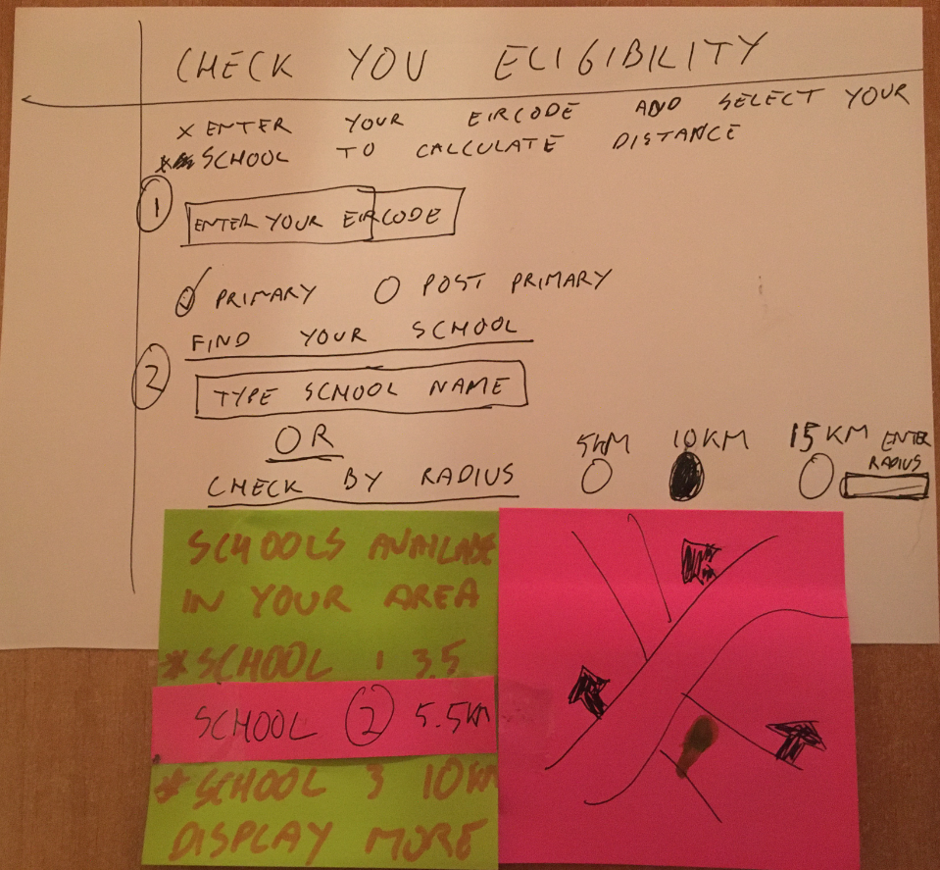 CHECK YOU ELIGIBILITY
x ENTER YOUR EIRCODE AND SELECT YOUR
SCHOOL TO CALCULATE DISTANCE
1
ENTER YOUR EIRCODE
PRIMARY POST PRIMARY
FIND YOUR SCHOOL
2
TYPE SCHOOL NAME
OR
CHECK BY RADIUS
5KM 10KM 15KM ENTER
RADIUS
SCHOOLS AVAILABE
IN YOUR AREA
* SCHOOL 1 3.5
SCHOOL 2 5.5KM
* SCHOOL 3 10KM
DISPLAY MORE